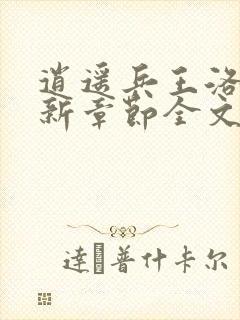 逍遥兵王洛
新章节全文
達普什卡尔